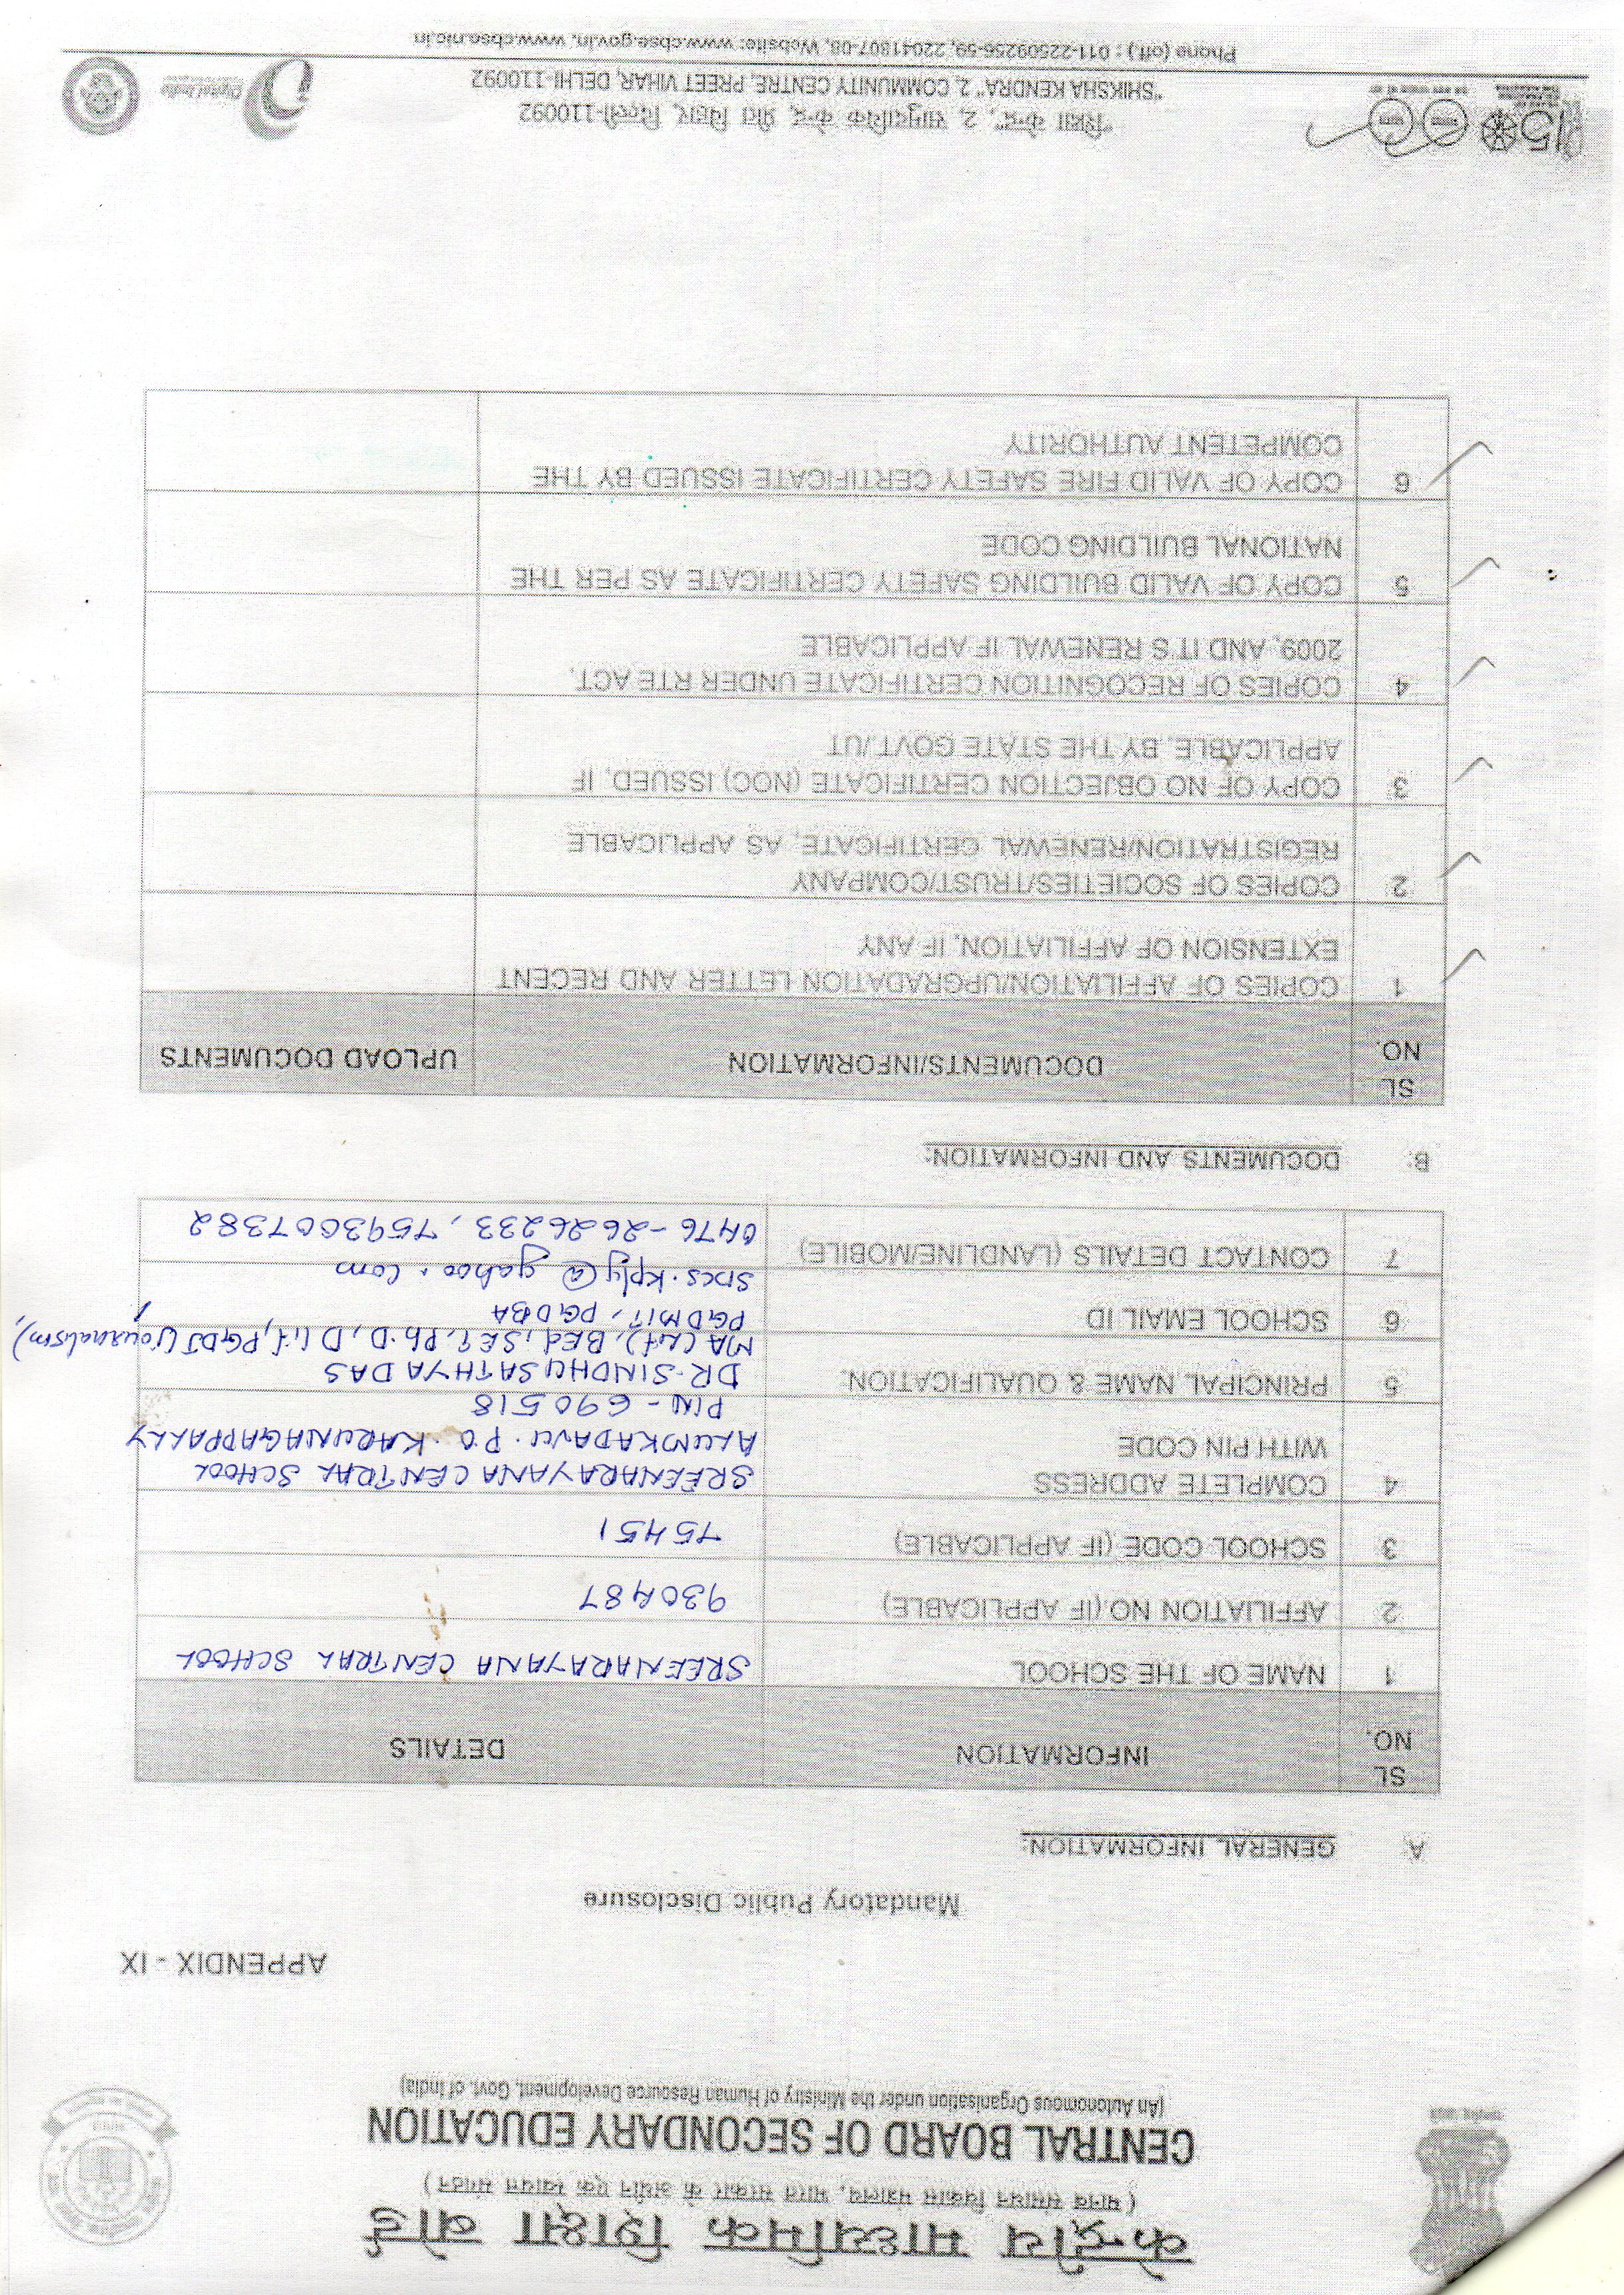 केन्द्रीय माध्यमिक शिक्षा बोर्ड
( मानव संसाधन विकास मंत्रालय, भारत सरकार के अधीन एक स्वायत्त संगठन )
CENTRAL BOARD OF SECONDARY EDUCATION
(An Autonomous Organisation under the Ministry of Human Resource Development, Govt. of India)
APPENDIX - IX
Mandatory Public Disclosure
A GENERAL INFORMATION:
SL NO. INFORMATION DETAILS
1 NAME OF THE SCHOOL SREENARAYANA CENTRAL SCHOOL
2 AFFILIATION NO.(IF APPLICABLE) 930487
3 SCHOOL CODE (IF APPLICABLE) 75451
4 COMPLETE ADDRESS SREENARAYANA CENTRAL SCHOOL
WITH PIN CODE ALUMKADAVU. P.O. KARUNAGAPPALLY
PIN - 690518
5 PRINCIPAL NAME & QUALIFICATION: DR. SINDHU SATHYADAS
MA (Lit), BEd, SET, Ph.D, D Lit, PGDJ (Journalism),
PGDMIT, PGDBA
6 SCHOOL EMAIL ID sncs.kply@yahoo.com
7 CONTACT DETAILS (LANDLINE/MOBILE) 0476-2626233, 7593007382
B: DOCUMENTS AND INFORMATION:
SL NO. DOCUMENTS/INFORMATION UPLOAD DOCUMENTS
1 COPIES OF AFFILIATION/UPGRADATION LETTER AND RECENT
EXTENSION OF AFFILIATION, IF ANY
2 COPIES OF SOCIETIES/TRUST/COMPANY
REGISTRATION/RENEWAL CERTIFICATE, AS APPLICABLE
3 COPY OF NO OBJECTION CERTIFICATE (NOC) ISSUED, IF
APPLICABLE, BY THE STATE GOVT./UT
4 COPIES OF RECOGNITION CERTIFICATE UNDER RTE ACT,
2009, AND IT'S RENEWAL IF APPLICABLE
5 COPY OF VALID BUILDING SAFETY CERTIFICATE AS PER THE
NATIONAL BUILDING CODE
6 COPY OF VALID FIRE SAFETY CERTIFICATE ISSUED BY THE
COMPETENT AUTHORITY
"शिक्षा केन्द्र", 2, सामुदायिक केन्द्र, प्रीत विहार, दिल्ली-110092
"SHIKSHA KENDRA" 2, COMMUNITY CENTRE, PREET VIHAR, DELHI-110092
Digital India
Phone (off.) : 011-22509256-59, 22041807-08, Website: www.cbse.gov.in, www.cbse.nic.in